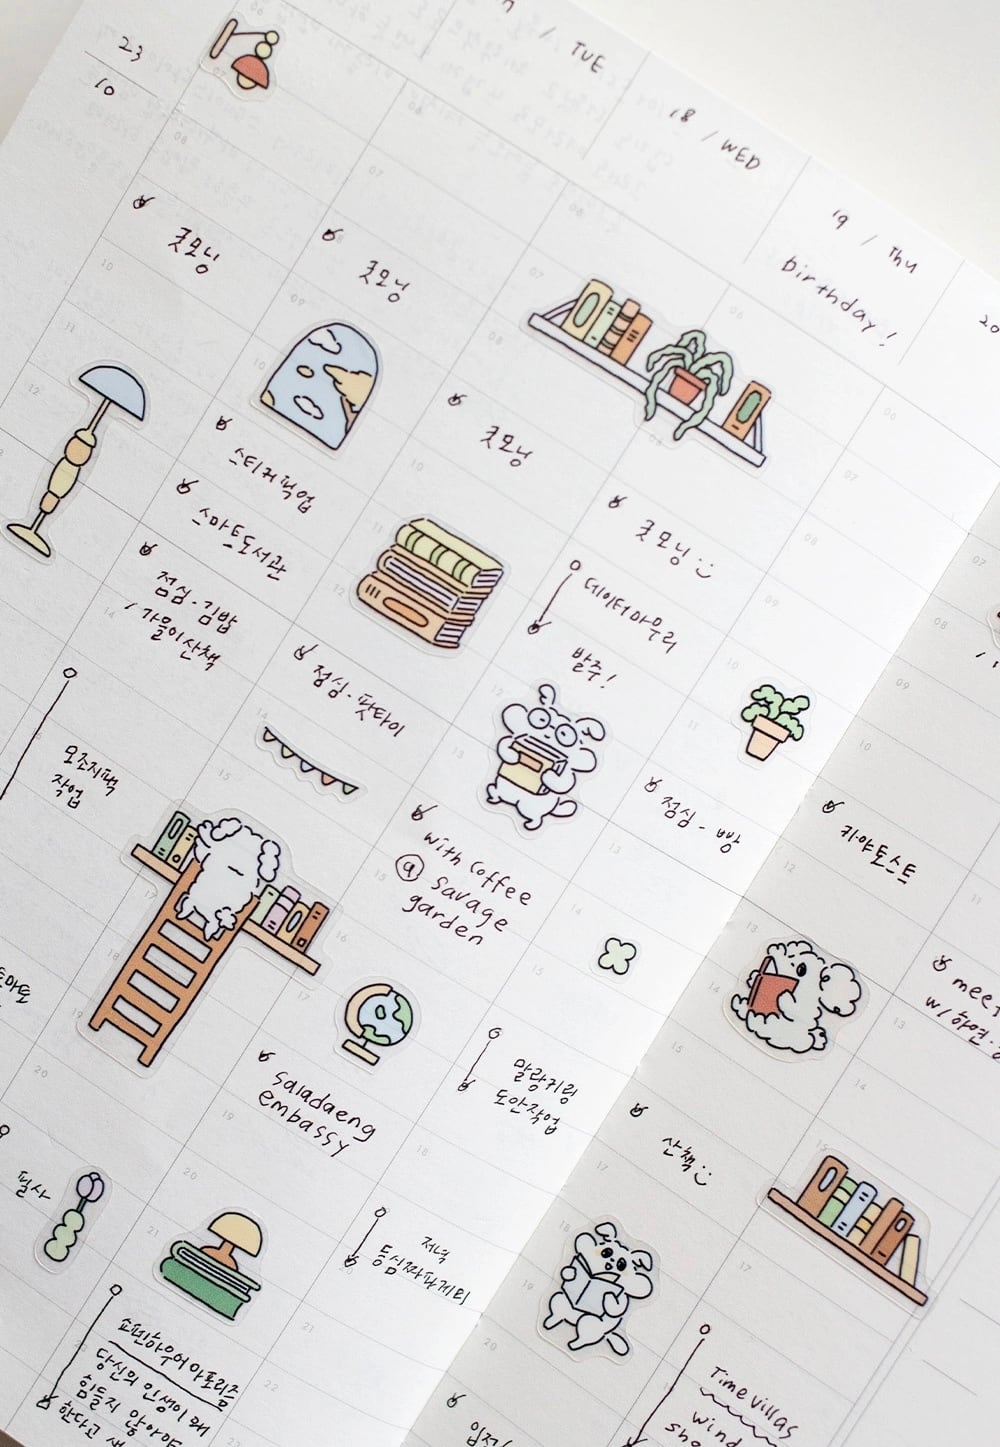 23
10
/ TUE
18 / WED
19 / Thu
birthday!
20
굿모닝
스티커픽업
스마트도서관
점심 - 김밥
/ 가을이산책
모조지팩
작업
필사
굿모닝
점심 - 팟타이
saladaeng
embassy
쇼펜하우어 아포리즘
당신의 인생이 왜
힘들지 않아야
한다고
굿모닝
with coffee
@ savage
garden
저녁
등심짜파게티
굿모닝
데이터마무리
발주!
말랑키링
도안작업
점심 - 빵
산책
카야토스트
Time villas
meet
w/